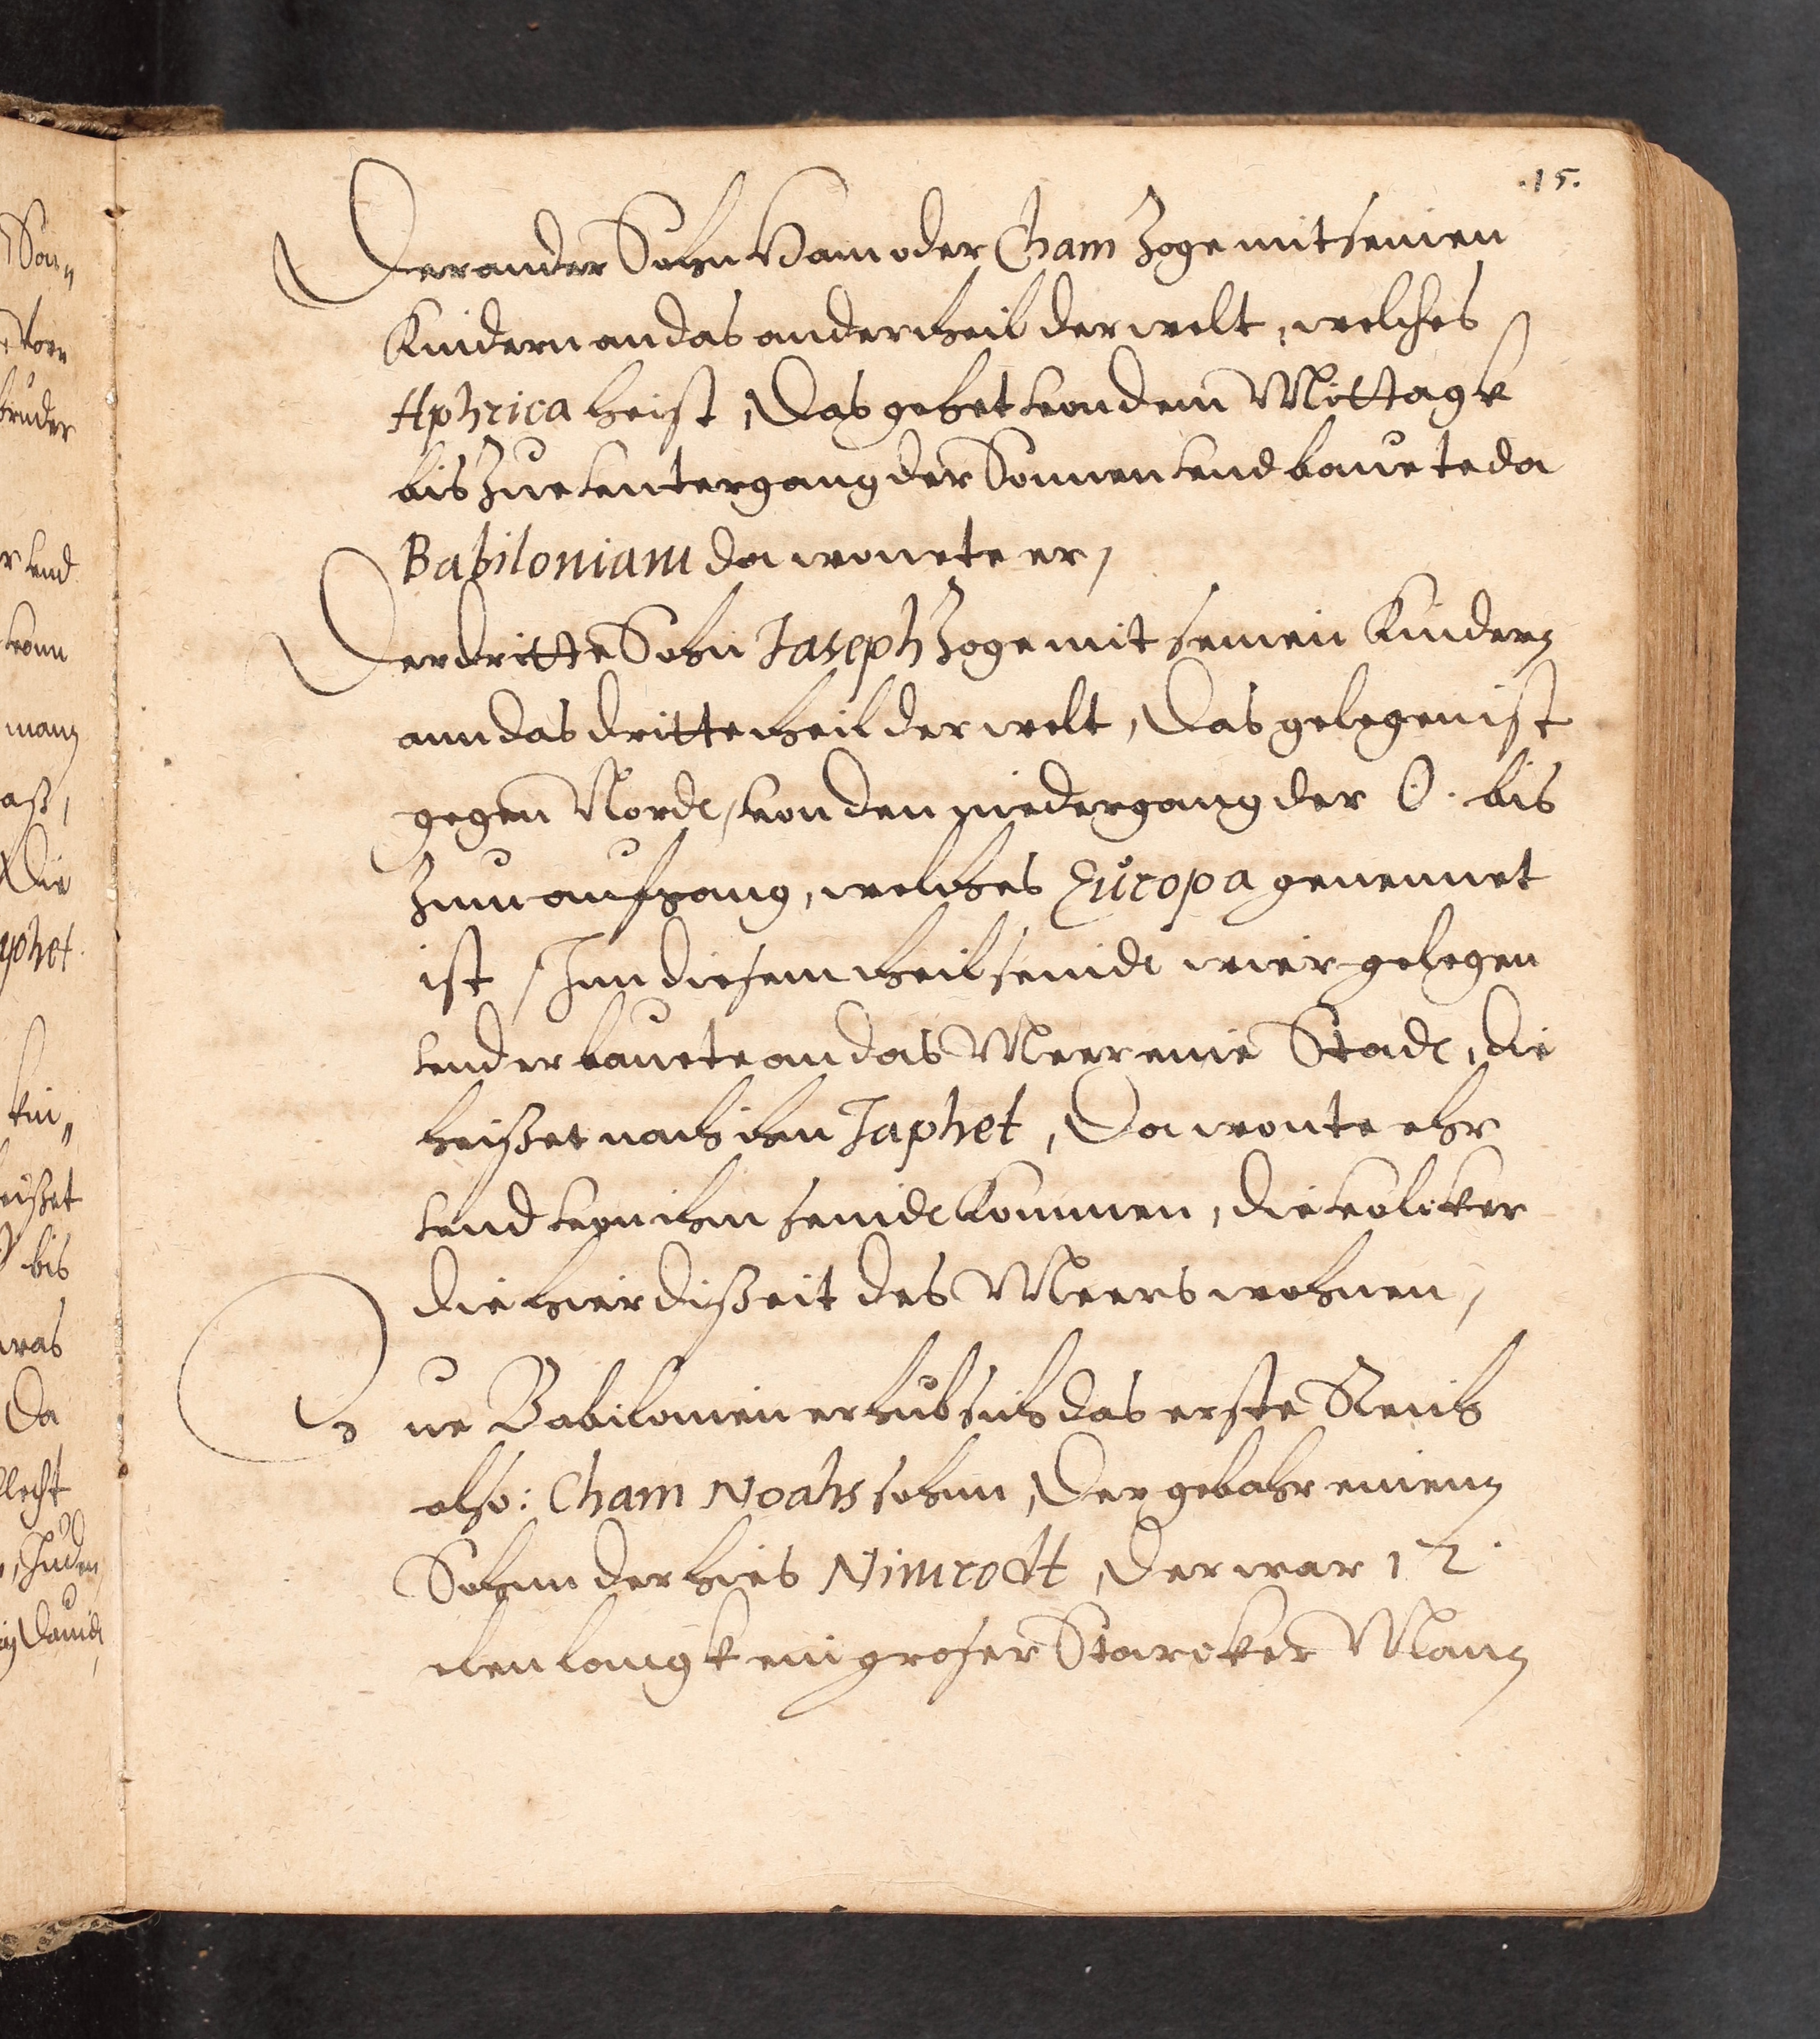 .15.
Der ander Sohn Ham oder Cham Zoge mit seinen
Kindern an das ander theil der welt, welches
Aphrica heist, Das gehet von dem Mittagk
bis Zue untergang der Sonnen und bauete da
Babiloniam da wonete er,
Der dritte Sohn Jaseph Zoge mit seinen Kindern
ann das dritte theil der welt, Das gelegen ist
gegen Nordt, von den niedergang der O. bis
Zum aufgang, welches Europa genennet
ist, Inn diesem theil seindt wier gelegen
und er bauete an das Meer eine Stadt, die
heißet nach ihm Japhet, Da wonte ehr
und von ihm seindt kommen, die volcker
die hier dißeit des Meers wohnen,
Zue Babilonien erhub sich das erste Reich
also: Cham Noahs sohnn, Der gebahr einen
Sohnn der hies Nimrodt, der war 12.
elen langk ein groser Starcker Mann
Son„
von
bruder
und
vonn
mann
Die
aphet.
kin„
heißet
bis
was
Da
Juden
Dauidt